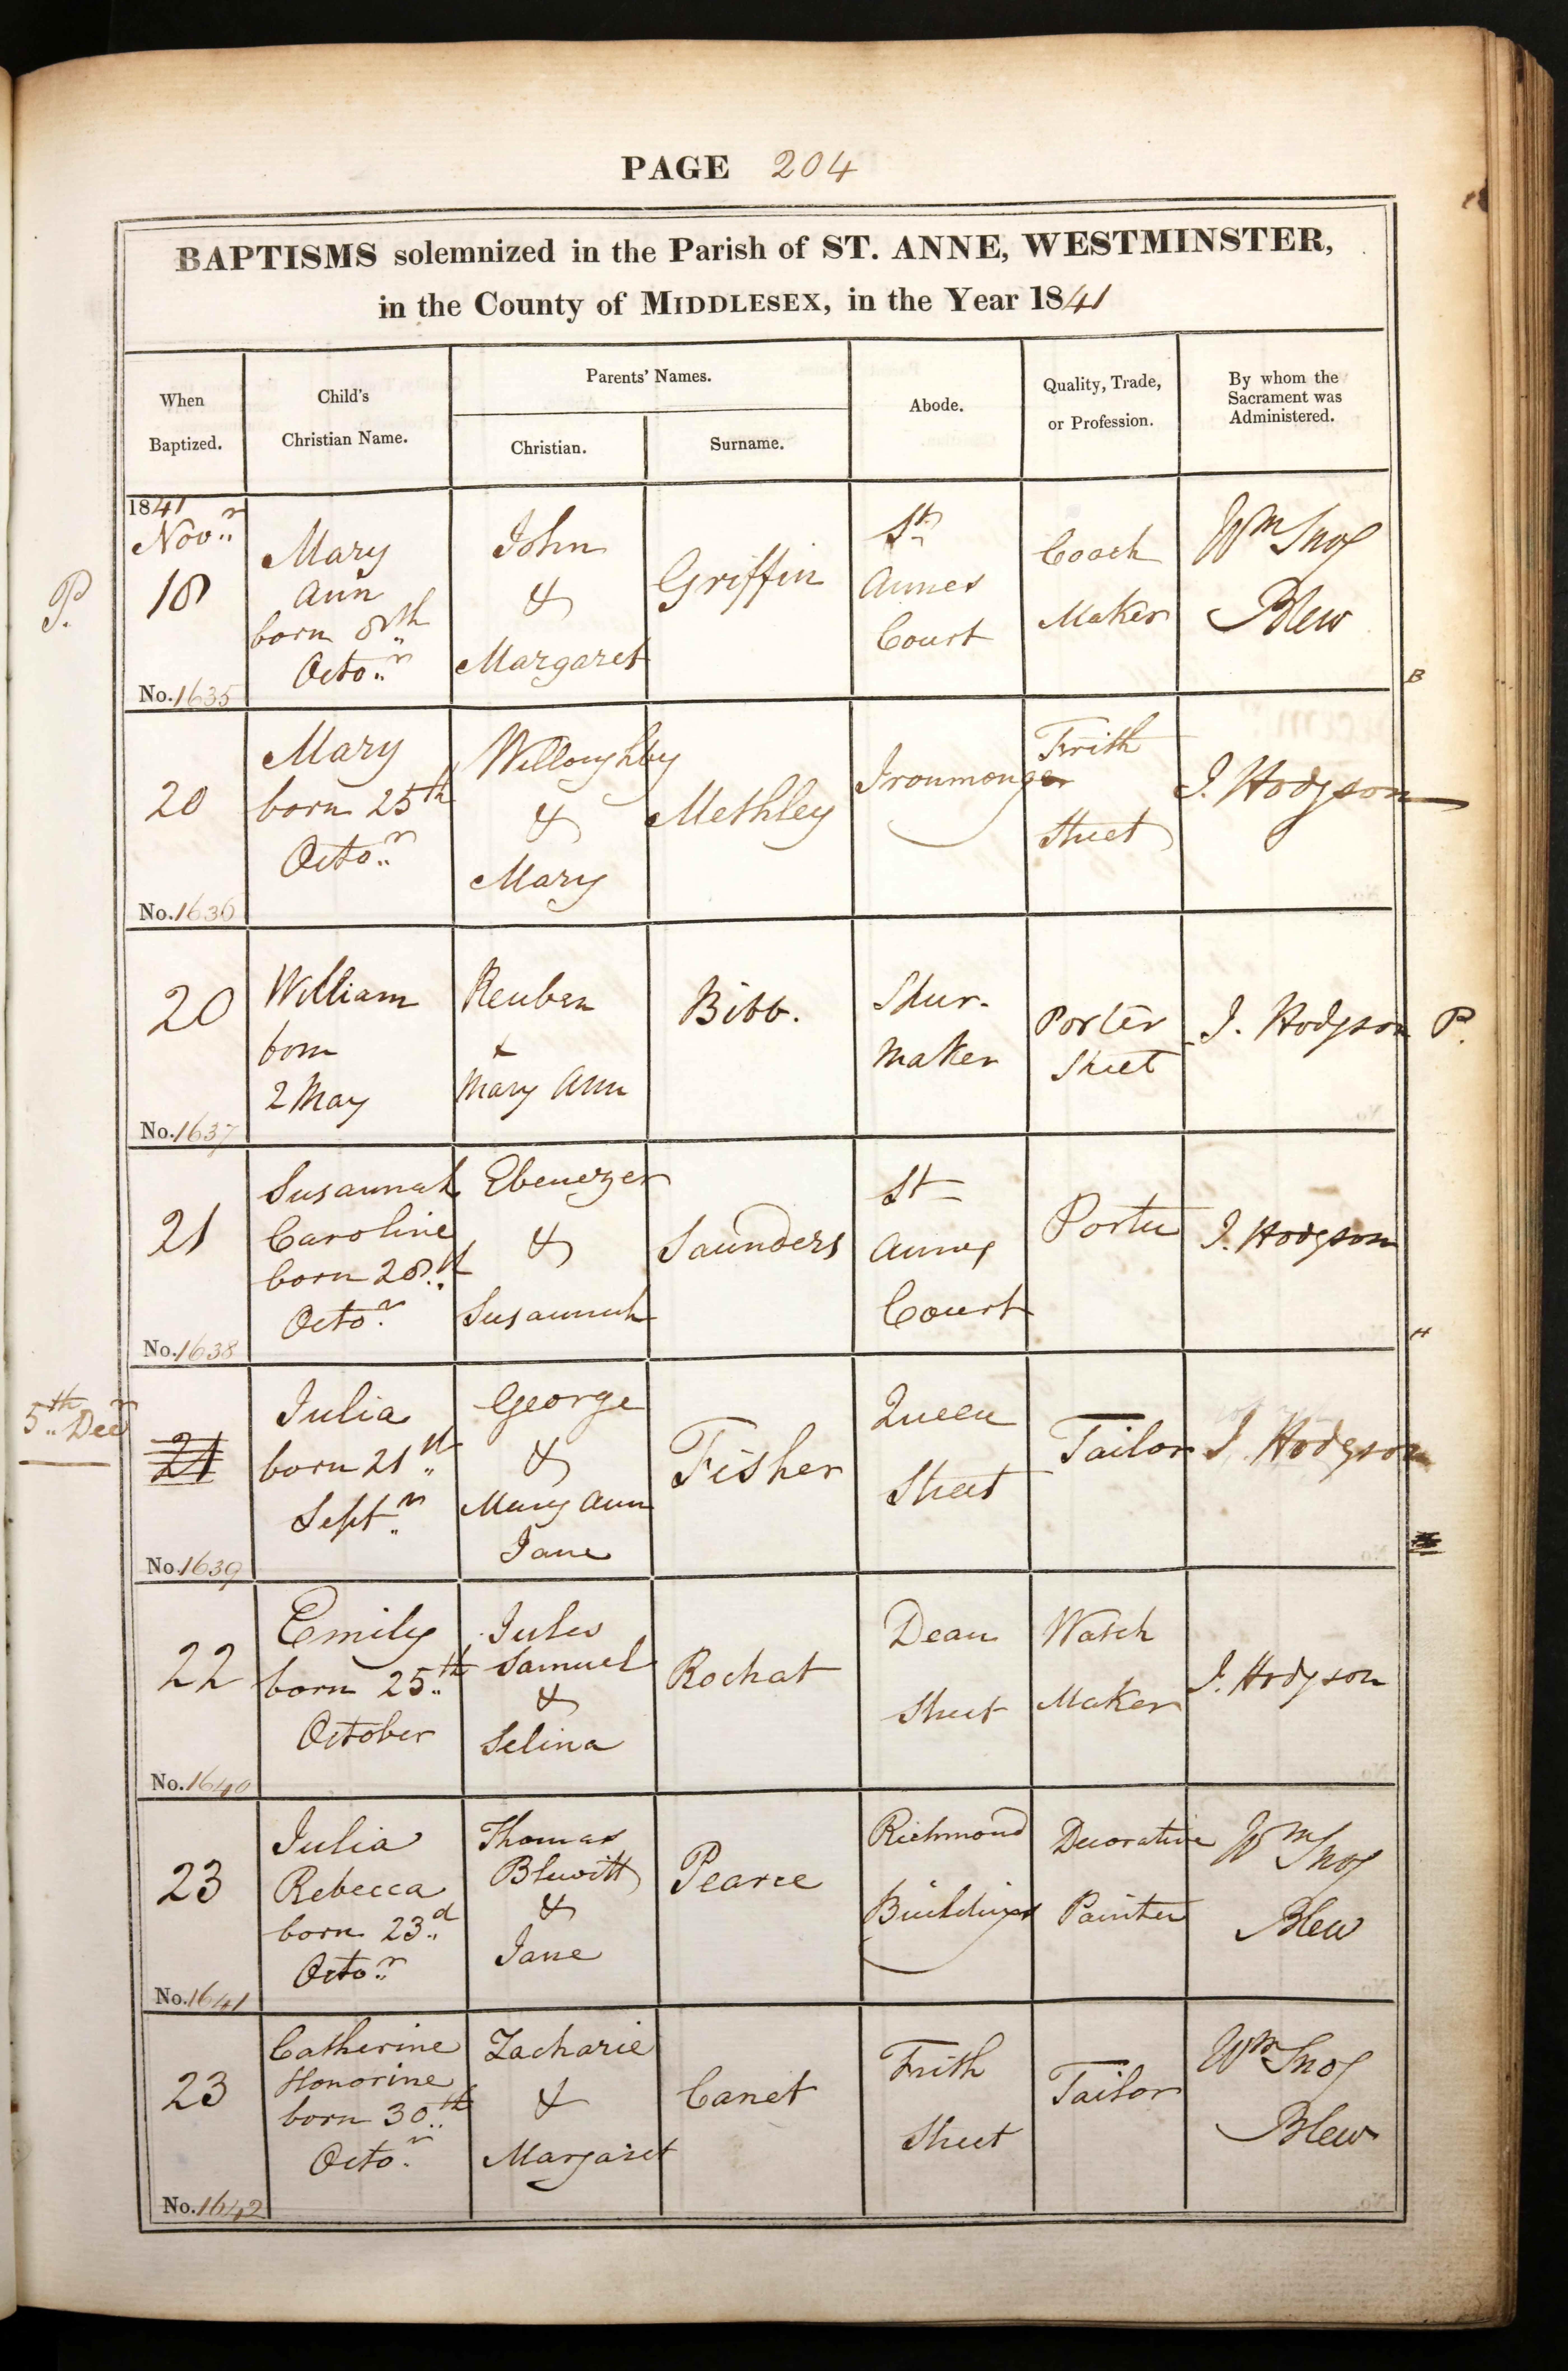 PAGE 204
BAPTISMS solemnized in the Parish of ST. ANNE, WESTMINSTER,
in the County of MIDDLESEX, in the Year 1841
When
Baptized.
Child's
Christian Name.
Parents' Names.
Christian.
Surname.
Abode.
Quality, Trade,
or Profession.
By whom the
Sacrament was
Administered.
P.
1841
Novr
18
No. 1635
Mary
Ann
born 8th
Octor
John
&
Margaret
Griffin
St
Annes
Court
Coach
Maker
Wm
Blew
B
20
No. 1636
Mary
born 25th
Octor
Willoughby
&
Mary
Methley
Ironmonger
Frith
Street
J. Hodgson
20
No. 1637
William
born
2 May
Reuben
&
Mary Ann
Bibb.
Maker
Porter
Street
J. Hodgson
P.
21
No. 1638
Susannah
Caroline
born 28th
Octor
Ebenezer
&
Susannah
Saunders
St
Annes
Court
Porter
J. Hodgson
H
5th Decr
21
No. 1639
Julia
born 21st
Septr
George
&
Mary Ann
Jane
Fisher
Queen
Street
Tailor
J. Hodgson
22
No. 1640
Emily
born 25th
October
Jules
Samuel
&
Selina
Rochat
Dean
Street
Watch
Maker
J. Hodgson
23
No. 1641
Julia
Rebecca
born 23d
Octor
Thomas
Blewitt
&
Jane
Pearce
Richmond
Buildings
Decorative
Painter
Wm
Blew
23
No. 1642
Catherine
Honorine
born 30th
Octor
Zacharie
&
Margaret
Canet
Frith
Street
Tailor
Wm
Blew